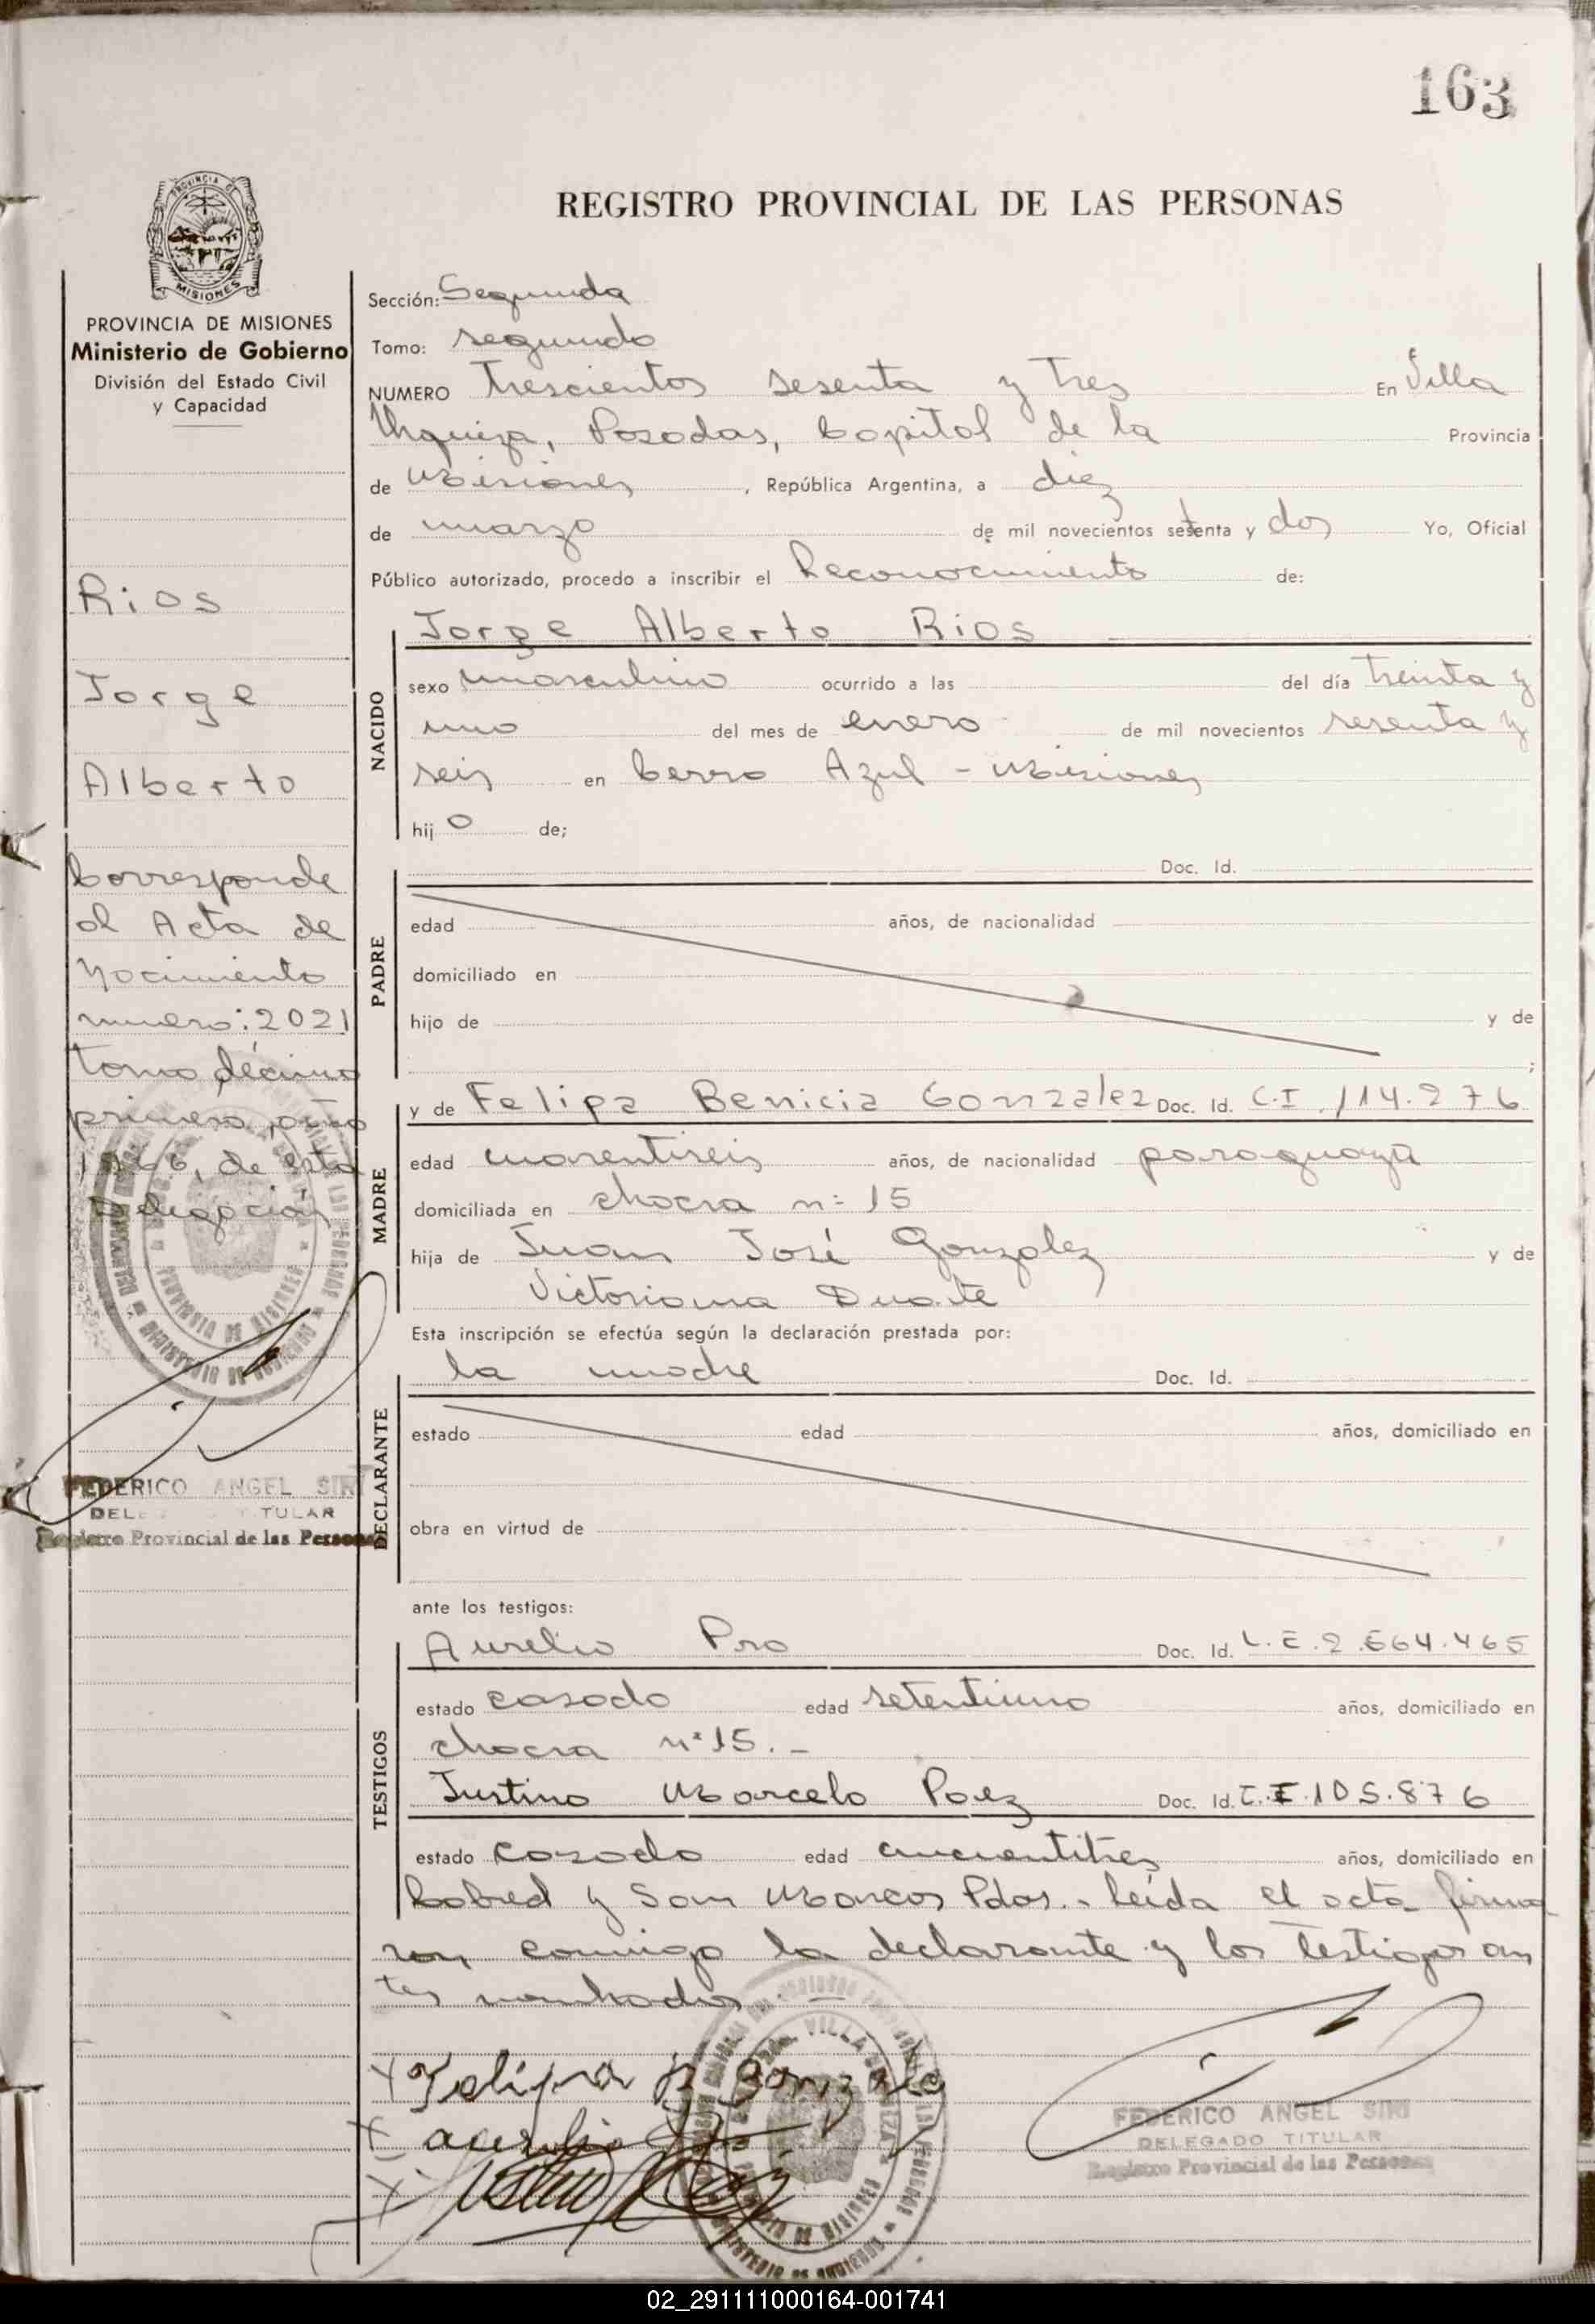 163
PROVINCIA DE
MISIONES
REGISTRO PROVINCIAL DE LAS PERSONAS
PROVINCIA DE MISIONES
Ministerio de Gobierno
División del Estado Civil
y Capacidad
Rios
Jorge
Alberto
Corresponde
al Acta de
Nacimiento
numero: 2021
tomo décimo
primero, año
1966, de esta
Delegación
FEDERICO ANGEL SIRI
TITULAR
Registro Provincial de las Personas
Sección: Segunda
Tomo: segundo
NUMERO Trescientos sesenta y Tres En Villa
Urquiza, Posadas, Capital de la Provincia
de Misiones, República Argentina, a diez
de marzo de mil novecientos setenta y dos Yo, Oficial
Público autorizado, procedo a inscribir el Reconocimiento de:
Jorge Alberto Rios
NACIDO
sexo masculino ocurrido a las del día treinta y
uno del mes de enero de mil novecientos sesenta y
seis en Cerro Azul - Misiones
hijo de;
PADRE
Doc. Id.
edad años, de nacionalidad
domiciliado en
hijo de y de
;
MADRE
y de Felipa Benicia Gonzalez Doc. Id. C.I. 114.276
edad cuarentiseis años, de nacionalidad paraguaya
domiciliada en chacra n: 15
hija de Juan José Gonzalez y de
Victoriana Duarte
Esta inscripción se efectúa según la declaración prestada por:
DECLARANTE
la madre Doc. Id.
estado edad años, domiciliado en
obra en virtud de
ante los testigos:
TESTIGOS
Aurelio Pro Doc. Id. L.E. 2.664.465
estado casado edad setentiuno años, domiciliado en
chacra nº 15.-
Justino Marcelo Paez Doc. Id. C.I. 105.876
estado casado edad cincuentitres años, domiciliado en
Cabred y San Marcos Pdas.- leída el acta firma
ron conmigo la declarante y los testigos an
tes nombrados.-
x Felipa B Gonzalez
x aurelio
x
FEDERICO ANGEL SIRI
DELEGADO TITULAR
Registro Provincial de las Personas
02_291111000164-001741